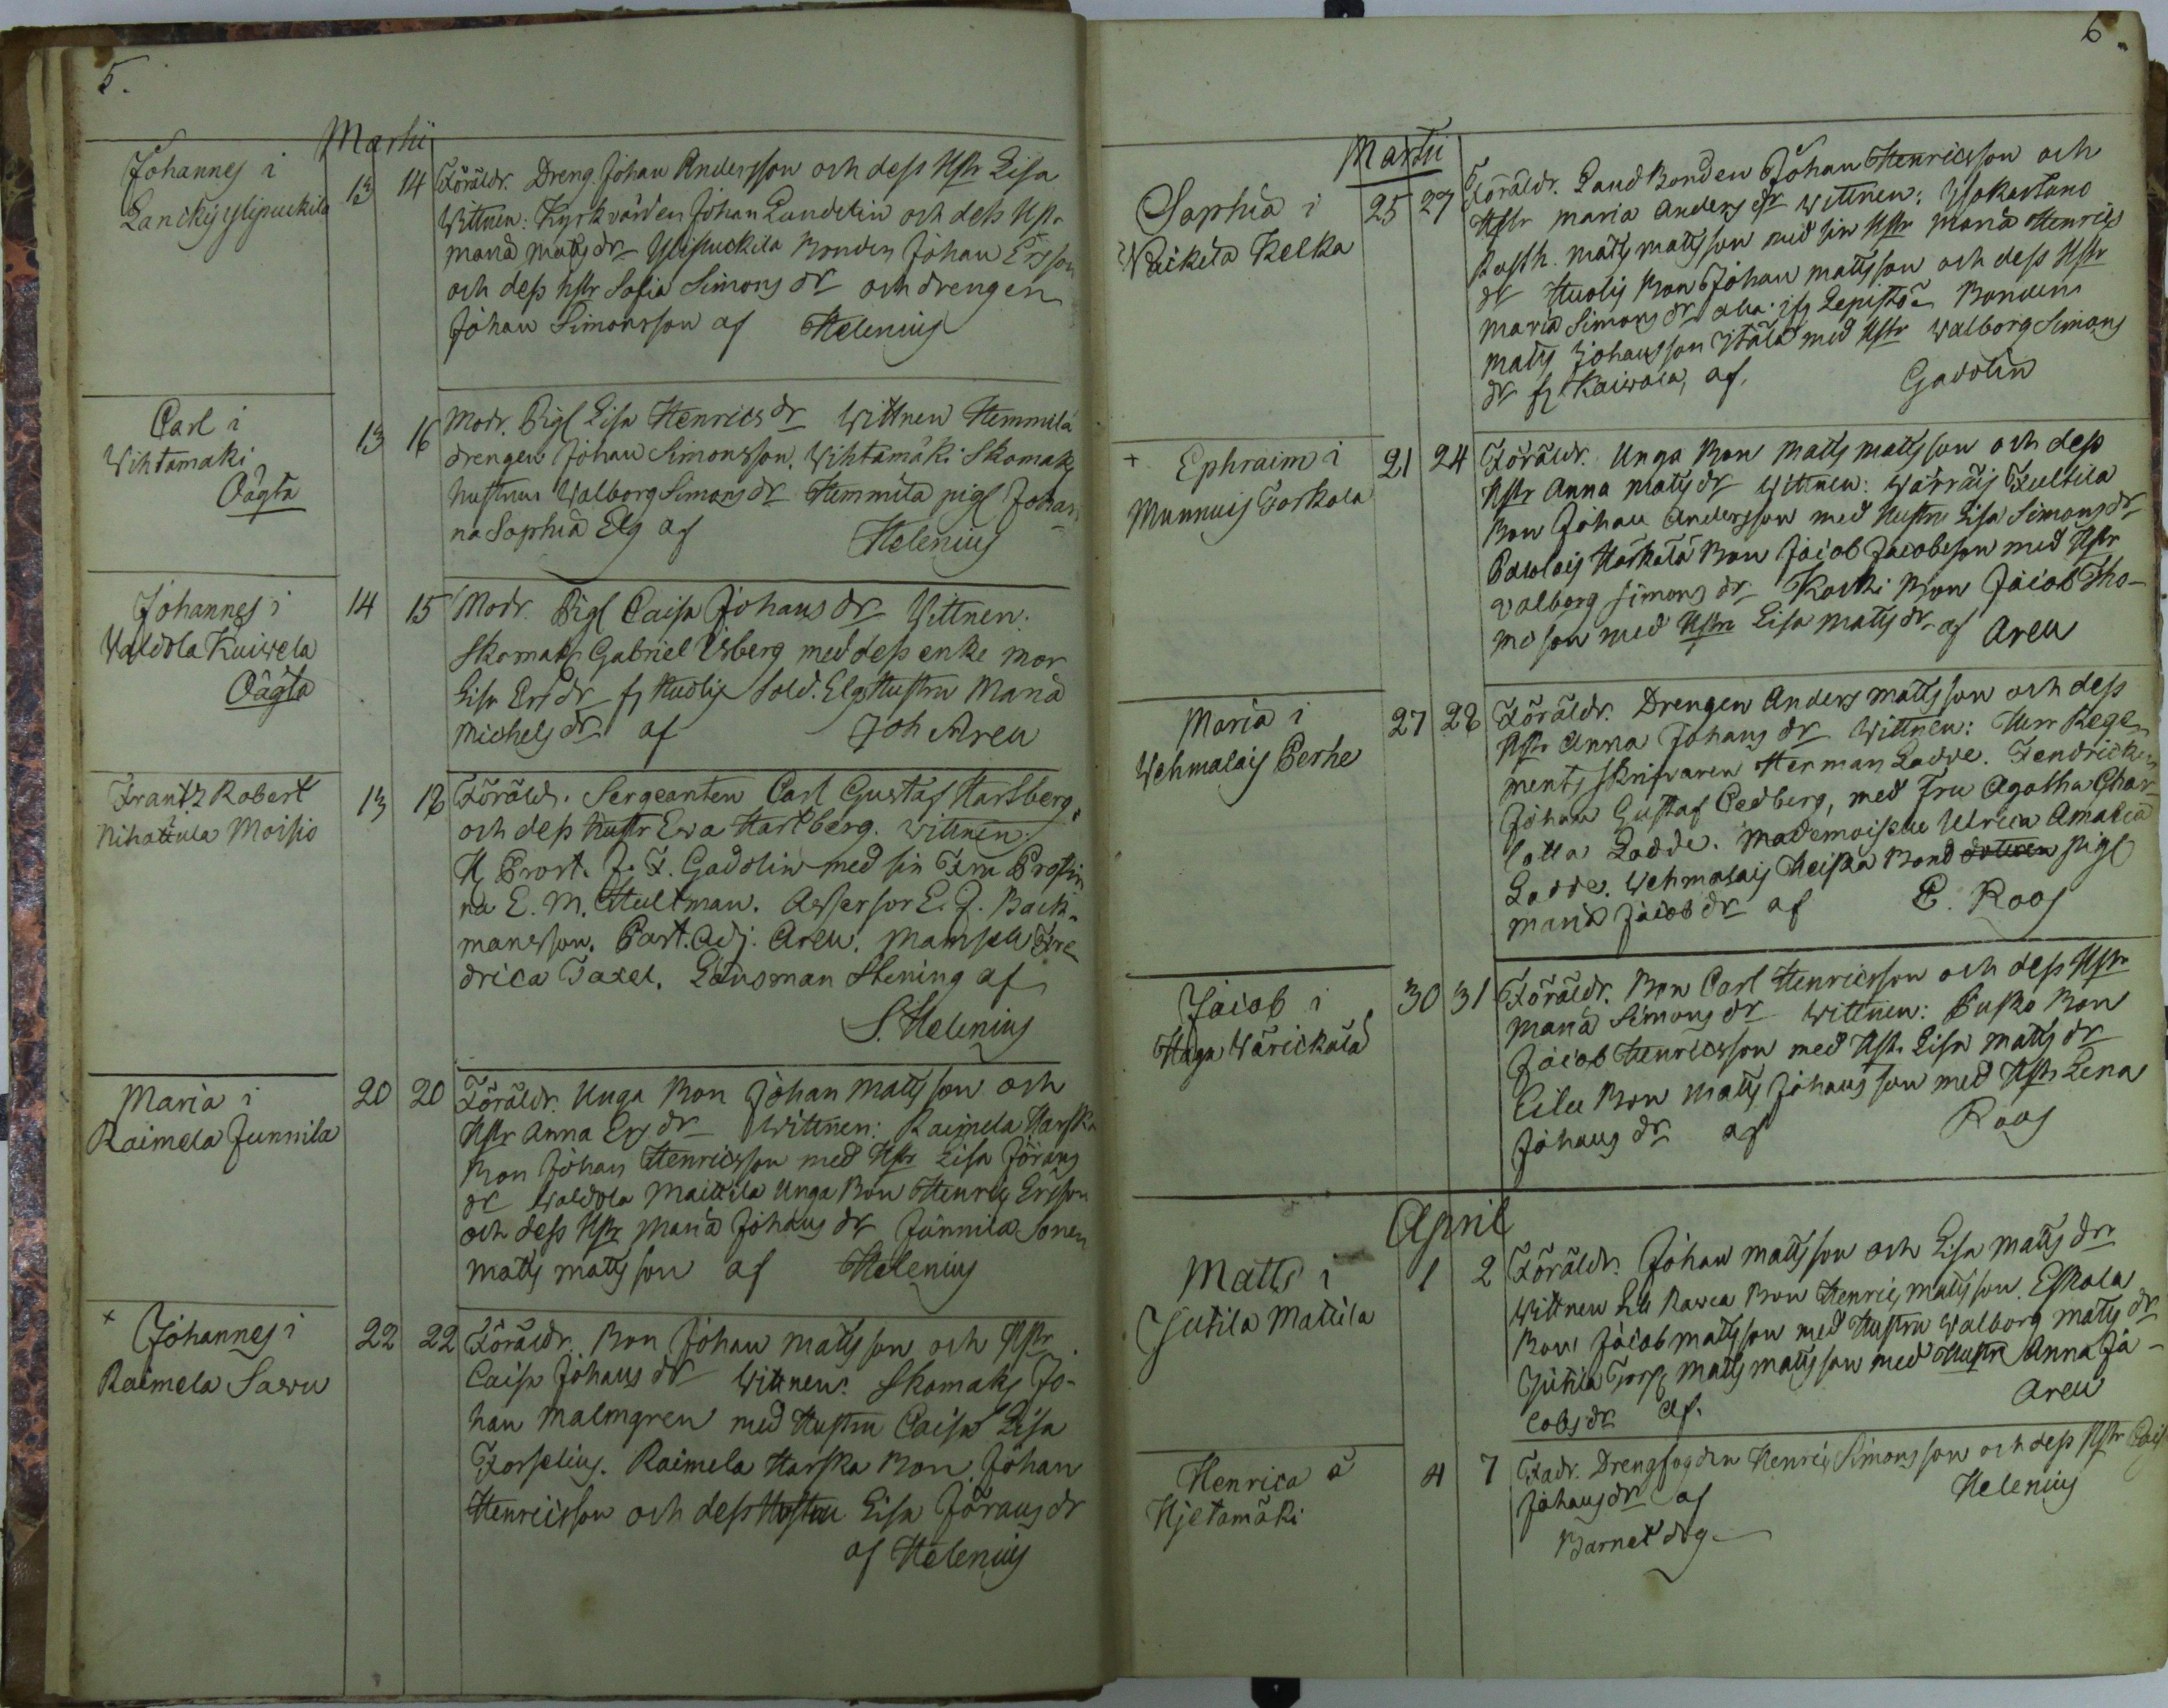 5.
Martii
Johannes i
Lancky ylipuckila
13 14 Föräldr. Dreng. Johan Andersson och dess Hstr Lisa
Wittnen: Kyrkvärden Johan Lundelin och dess Hstr
Maria Matsdr Ylipuckila Bonden Johan Ersson
och dess Hstr Sofia Simonsdr och drengen
Johan Simonsson af Helenius
Carl i
Wihtamäki
Oägta
13 16 Modr. Pig. Lisa Henricsdr Wittnen Hemmilä
drengen Johan Simonsson. Wihtämäki Skomak.
hustrun Walborg Simonsdr Hemmilä pig. Johan
na Sophia Elg af Helenius
Johannes i
Waldola Kuiwela
Oägta
14 15 Modr. Pig. Caisa Johansdr Wittnen.
Skomak. Gabriel Usberg med dess enke mor
Lisa Ersdr fr. Huolis Sold. Elgs Hustru Maria
Michelsdr af Joh Aren
Frantz Robert
Nihattula Moisio
13 18 Föräldr. Sergeanten Carl Gustaf Hartberg,
och dess Hustr Ewa Hartberg. Wittnen:
H. Prost. J. F. Gadolin med sin Fru Prostin
na E. M. Hultman. Assessor E. J. Back-
mansson. Past. Adj. Aren. Mamsell Fre
drica Taxel. Länsman Stening af
S. Helenius
Maria i
Raimela Junnila
20 20 Föräldr. Unga Bon Johan Mattsson och
Hstr Anna Ersdr Wittnen: Raimela Harska
Bon Johan Henricsson med Hstr Lisa Jörans
dr Waldola Maittila Unga Bon Henric Ersson
och dess Hstr Maria Johansdr Junnila Sonen
Matts Mattsson af Helenius
+ Johannes i
Raimela Sawu
22 22 Föräldr. Bon Johan Mattsson och Hstr
Caisa Johansdr Wittnen: Skomak. Jo-
han Malmgren med Hustru Caisa Lisa
Forselius. Raimela Harska Bon Johan
Henricsson och dess Hustru Lisa Jöransdr
af Helenius
6.
Martii
Sophia i
Wäickilä Kelka
25 27 Föräldr. Landbonden Johan Henricsson och
Hstr Maria Andersdr Wittnen: Isokartano
Rusth. Matts Mattsson med sin Hstr Maria Henrics
dr Huolis Bon Johan Mattsson och dess Hstr
Maria Simonsdr Lepistö Bonden
Matts Johansson Itälä med Hstr Walborg Simons
dr fr. Kaiwola, af, Gadolin
+ Ephraim i
Munnuis Torkola
21 24 Föräldr. Unga Bon Matts Mattsson och dess
Hstr Anna Mattsdr Wittnen: Wärräis Tultila
Bon Johan Andersson med Hustru Lisa Simonsdr
Pawlais Härkälä Bon Jacob Jacobsson med Hstr
Valborg Simonsdr Koski Bon Jacob Tho-
masson med Hstru Lisa Mattsdr af Aren
Maria i
Wehmalais Perhe
27 28 Föräldr. Drengen Anders Mattsson och dess
Hstr Anna Johansdr Wittnen: Herr Rege-
mentsskrifvaren Herman Ladde. Fendricken
Johan Gustaf Cedberg, med Fru Agatha Char
lotta Ladde. Mademoiselle Ulrica Amalia
Ladde. Wehmalais Heiska Bond pigl
Maria Jacobdr af P. Roos
Jacob i
Haga Wärickälä
30 31 Föräldr. Bon Carl Henricsson och dess Hstr
Maria Simonsdr Wittnen: Pusko Bon
Jacob Henricsson med Hstr Lisa Mattsdr
Eilu Bon Matts Johansson med Hstr Lena
Johansdr af Roos
April
Matts i
Jutila Mattila
1 2 Föräldr. Johan Mattsson och Lisa Mattsdr
Wittnen Bon Henric Mattsson. Eskola
Bon Jacob Mattsson med Hustru Walborg Mattsdr
Jutila Torp. Matts Mattsson med Hustru Anna Ja-
cobsdr af. Aren
Henrica å
Hjetamäki
4 7 Fadr. Drengfogden Henric Simonsson och dess Hstr Cais
Johansdr af Helenius
Barnet dog